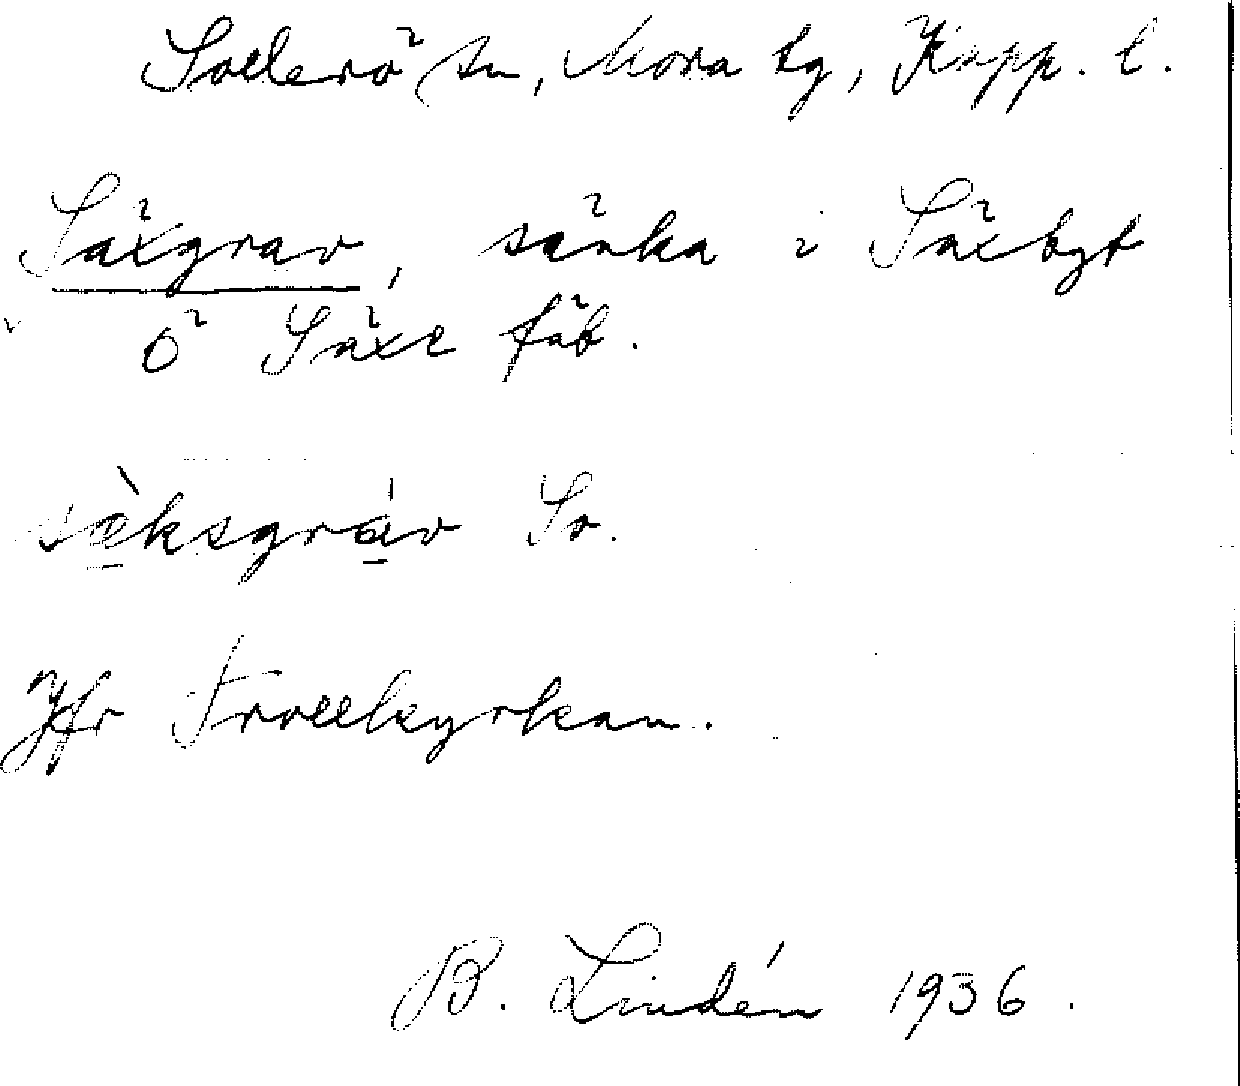 Sollerö sn, Mora tg, Kopp. l.
Säxgrav, sänka i Säxbgt
ö Säxe fäb.
sàksgráv So.
Jfr Trollkyrkan.
B. Lindén 1936.